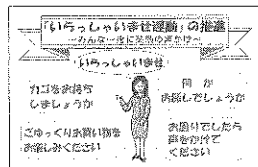 「いらっしゃいませ運動」の推進
〜みんな一緒に笑顔の声かけ〜
いらっしゃいませ
カゴをお持ち
しましょうか
何か
お探しでしょうか
ごゆっくりお買い物を
お楽しみください
お困りでしたら
声をかけて
ください